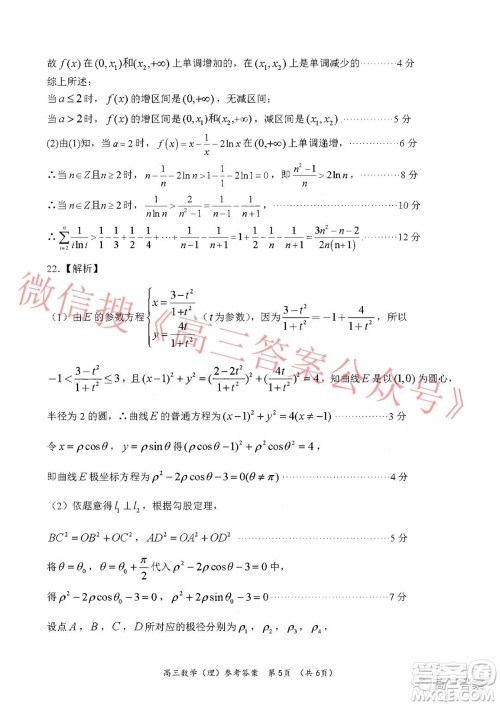 故 f(x) 在 (0, x₁)和(x₂,+∞) 上单调增加的，在 (x₁, x₂) 上是单调减少的············4 分
综上所述：
当 a≤2 时，f(x) 的增区间是 (0,+∞)，无减区间；
当 a>2 时，f(x) 的增区间是 (0, x₁)和(x₂,+∞)，减区间是 (x₁, x₂)············5 分
(2)由(1)知，当 a=2 时，f(x)=x-1/x-2lnx 在 (0,+∞) 上单调递增，············6 分
∴当 n∈Z且n≥2 时，n-1/n-2lnn>1-1-2ln1=0，即 (n²-1)/n>2lnn，············8 分
∴当 n∈Z且n≥2 时，1/(nlnn)>2/(n²-1)=1/(n-1)-1/(n+1)············9 分
∴∑(i=2→n) 1/(ilni)>1/1-1/3+1/2-1/4+1/3-1/5+⋯+1/(n-1)-1/(n+1)=(3n²-n-2)/(2n(n+1))············12 分
22.【解析】
（1）由 E 的参数方程 { x=(3-t²)/(1+t²) y=4t/(1+t²) （t 为参数），因为 (3-t²)/(1+t²)=4/(1+t²)-1，所以
-1<(3-t²)/(1+t²)≤3，且 (x-1)²+y²=((2-2t²)/(1+t²))²+(4t/(1+t²))²=4，知曲线 E 是以 (1,0) 为圆心，
半径为 2 的圆，∴曲线 E 的普通方程为 (x-1)²+y²=4(x≠-1)
令 x=ρcosθ，y=ρsinθ 得 (ρcosθ-1)²+ρ²sin²θ=4，
即曲线 E 极坐标方程为 ρ²-2ρcosθ-3=0(θ≠π)············4 分
（2）依题意得 l₁⊥l₂，根据勾股定理，
BC²=OB²+OC²，AD²=OA²+OD²············5 分
将 θ=θ₀，θ=θ₀+π/2 代入 ρ²-2ρcosθ-3=0 中，
得 ρ²-2ρcosθ₀-3=0，ρ²+2ρsinθ₀-3=0············7 分
设点 A，B，C，D 所对应的极径分别为 ρ₁，ρ₂，ρ₃，ρ₄，则
高三数学（理）参考答案 第 5 页 （共 6 页）
微信搜《高三答案公众号》
高三答案